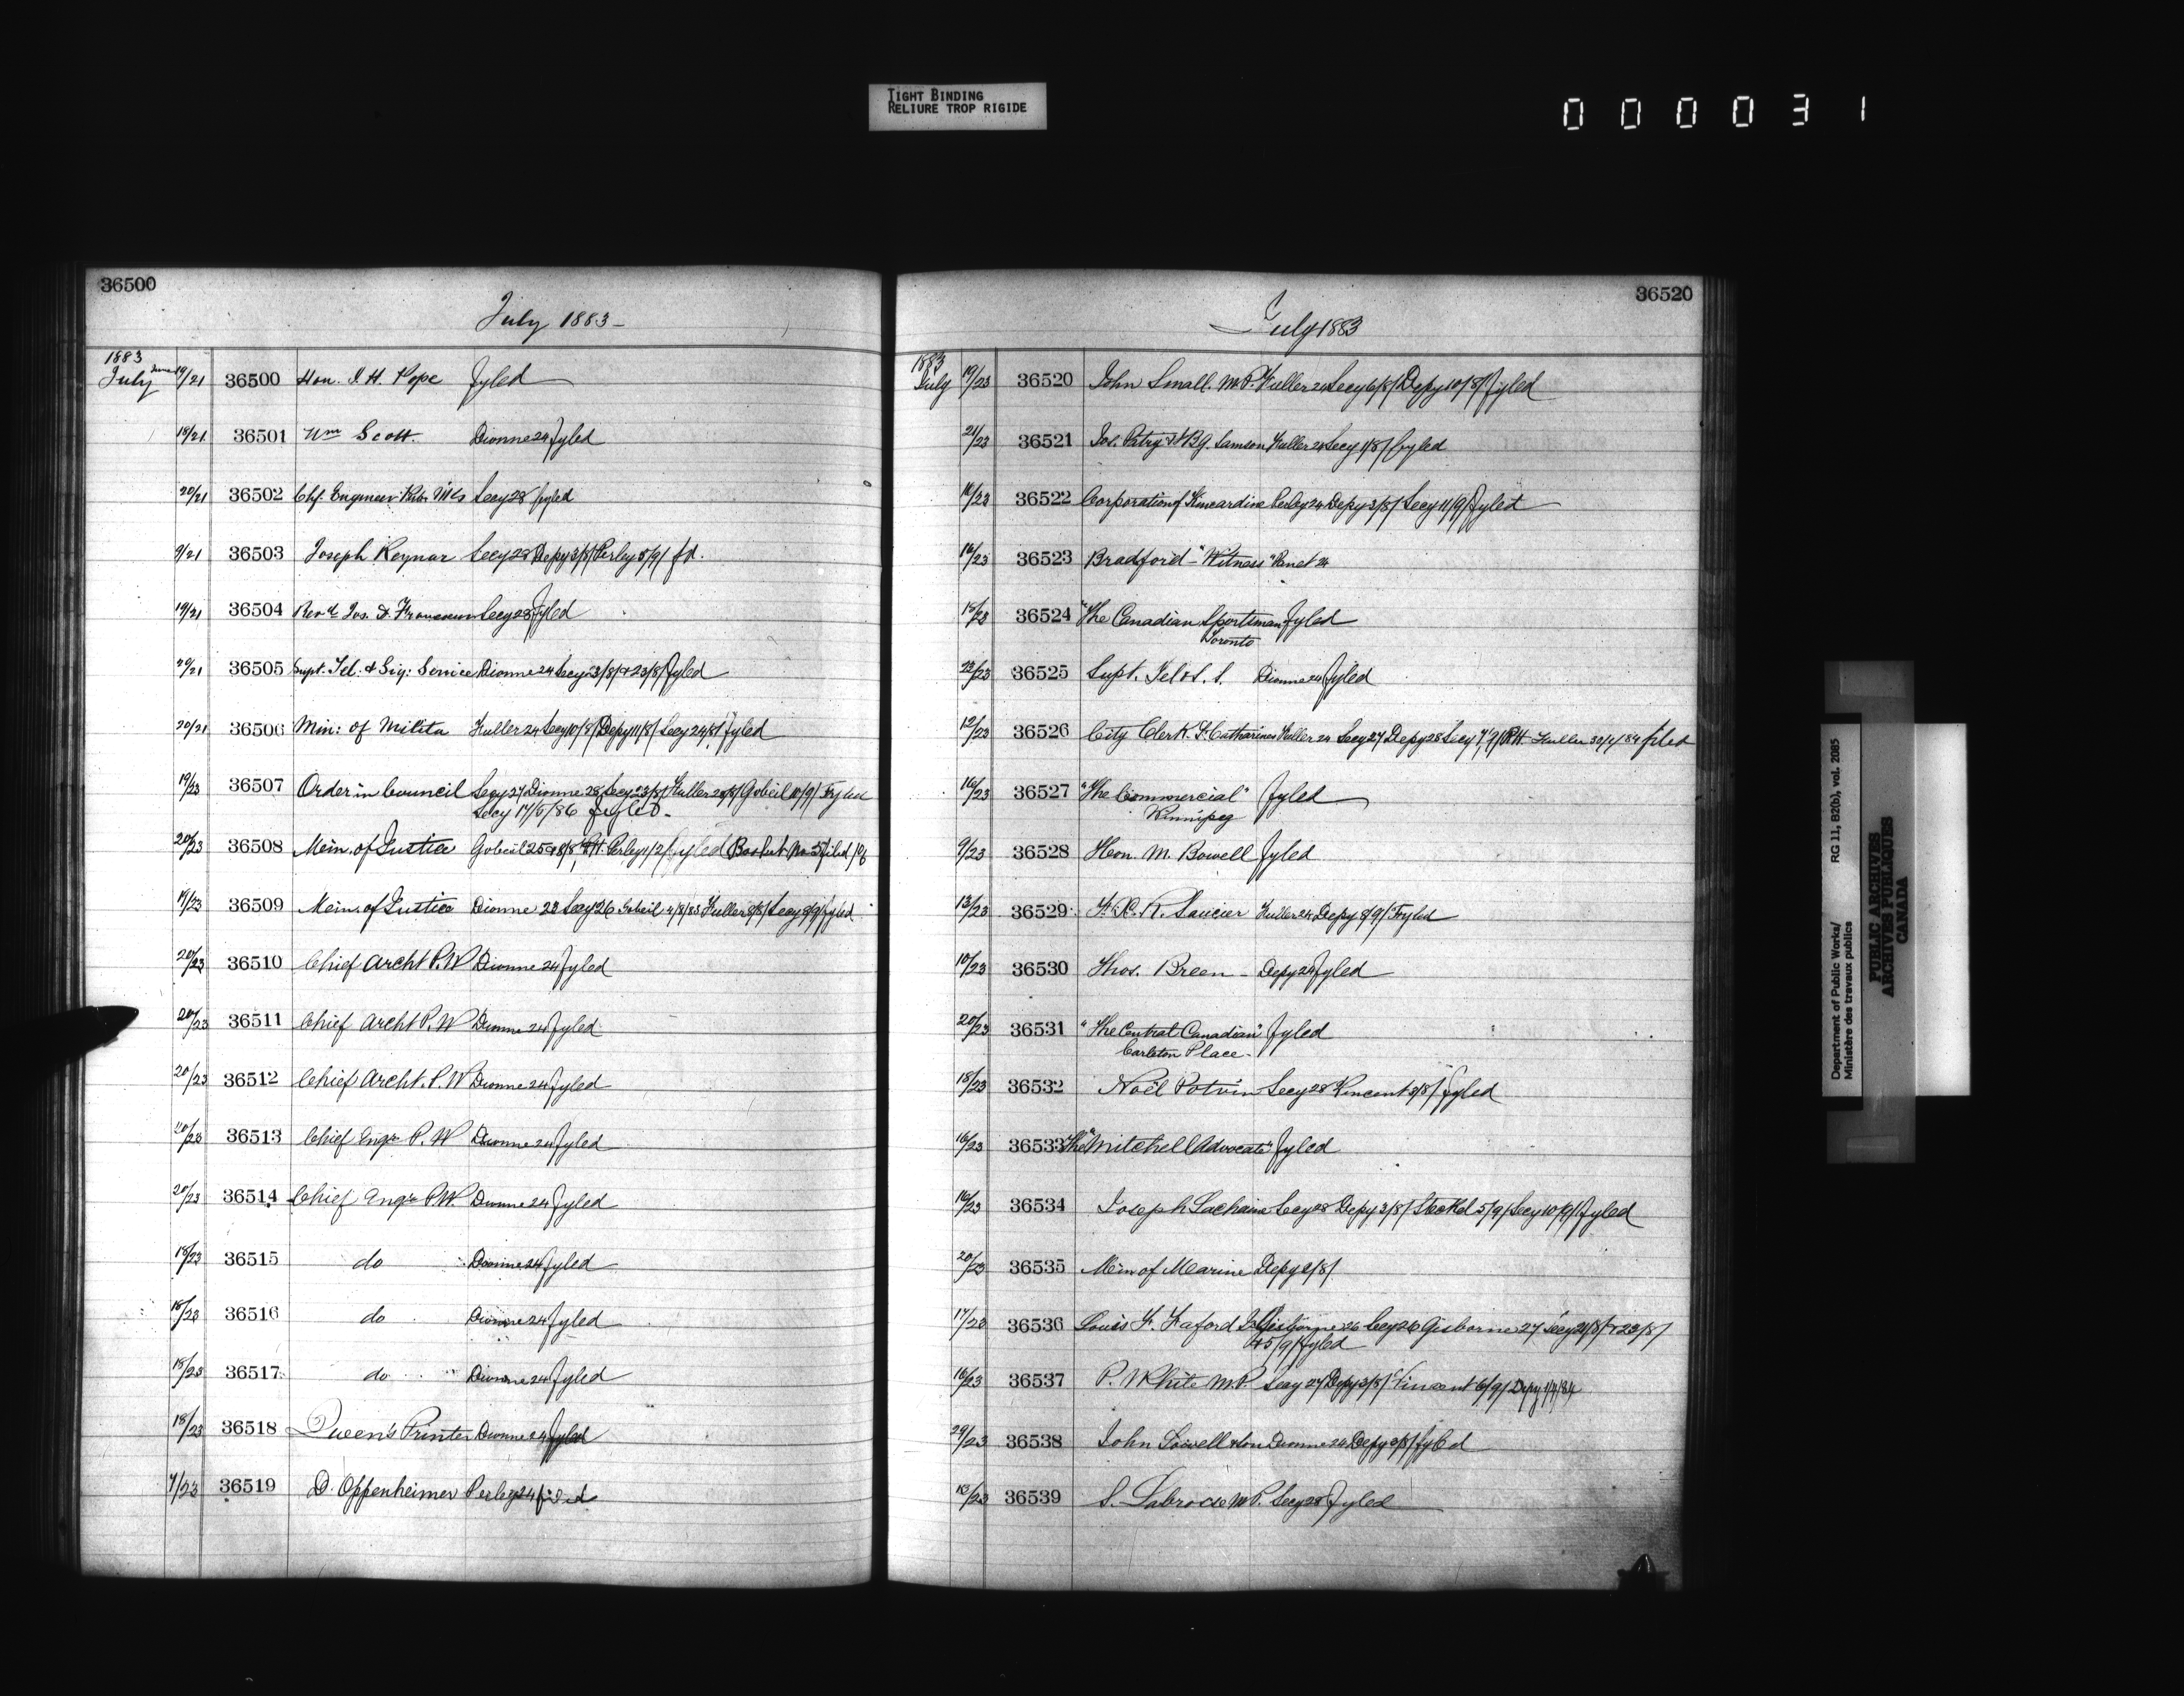 TIGHT BINDING
RELIURE TROP RIGIDE
000031
36500
July 1883-
1883
July June 19/21 36500 Hon. J. H. Pope Fyled
18/21 36501 Wm Scott. Dionne 24 Fyled
20/21 36502 Chf. Engineer Pub. Wks Secy 28 fyled
9/21 36503 Joseph Reynar Secy 28 Depy 3/8/ Perley 5/9/ fd.
19/21 36504 Revd Jos. Secy 28 Fyled
20/21 36505 Supt. Tel. & Sig: Service Dionne 24 Secy 3/8/ & 23/8/ Fyled
20/21 36506 Min: of Militia Fuller 24 Secy 10/8/ Depy 11/8/ Secy 24/8/ Fyled
19/23 36507 Order in Council Secy 27 Dionne 28 Secy 23/8/ Fuller 28/8/ Gobeil 10/9/ Fyled
Secy 17/5/86 Fyled.
20/23 36508 Min. of Justice Gobeil 25 & 8/8/ Perley 1/2/ Fyled Basket No 5 filed
19/23 36509 Min. of Justice Dionne 23 Secy 26 Gobeil 4/8/83 Fuller 8/8/ Secy 8/9/ fyled
20/23 36510 Chief Archt P.W Dionne 24 Fyled
20/23 36511 Chief Archt P.W Dionne 24 Fyled
20/23 36512 Chief Archt. P.W Dionne 24 Fyled
20/23 36513 Chief Engr P. W Dionne 24 Fyled
20/23 36514 Chief Engr P.W. Dionne 24 Fyled
18/23 36515 do Dionne 24 Fyled
18/23 36516 do Dionne 24 Fyled
18/23 36517 do Dionne 24 Fyled
18/23 36518 Queen's Printer Dionne 24 Fyled
7/23 36519 D. Oppenheimer Perley 24 filed
36520
July 1883
1883
July 19/23 36520 John Small. M.P. Fuller 24 Secy 6/8/ Depy 10/8/ Fyled
21/23 36521 Jos. Patry & B.G. Samson Fuller 24 Secy 1/8/ Fyled
16/23 36522 Corporation of Kincardine Perley 24 Depy 3/8/ Secy 11/9/ Fyled
16/23 36523 Bradford "Witness" 24
18/23 36524 "The Canadian Sportsman Fyled
Toronto
23/23 36525 Supt. Tel & S. S. Dionne 24 Fyled
12/23 36526 City Clerk St. Catharines Fuller 24 Secy 27 Depy 28 Secy 7/9/ P.H. Fuller 30/4/84 filed
16/23 36527 "The Commercial" Fyled
Winnipeg
9/23 36528 Hon. M. Bowell Fyled
13/23 36529 F. X. R. Saucier Fuller 24 Depy 8/9/ Fyled
10/23 36530 Thos. Breen - Depy 24 Fyled
20/23 36531 "The Central Canadian" Fyled
Carleton Place.
18/23 36532 Noël Potvin Secy 28 Vincent 3/8/ fyled
16/23 36533 The "Mitchell Advocate" Fyled
16/23 36534 Joseph Lachaine Secy 28 Depy 3/8/ Steckel 5/9/ Secy 10/9/ Fyled
20/23 36535 Min of Marine Depy 2/8/
17/23 36536 Louis F. Faford Gisborne 26 Secy 26 Gisborne 27 Secy 21/8/ & 23/8/
& 5/9/ fyled
16/23 36537 P. White M.P. Secy 27 Depy 3/8/ Vincent 6/9/ Depy
20/23 36538 John Lowell & Son Dionne 24 Depy 3/8/ Fyled
18/23 36539 S. Labrosse M P. Secy 28 Fyled
Department of Public Works/ RG 11, B2(b), vol. 2085
Ministère des travaux publics
PUBLIC ARCHIVES
ARCHIVES PUBLIQUES
CANADA